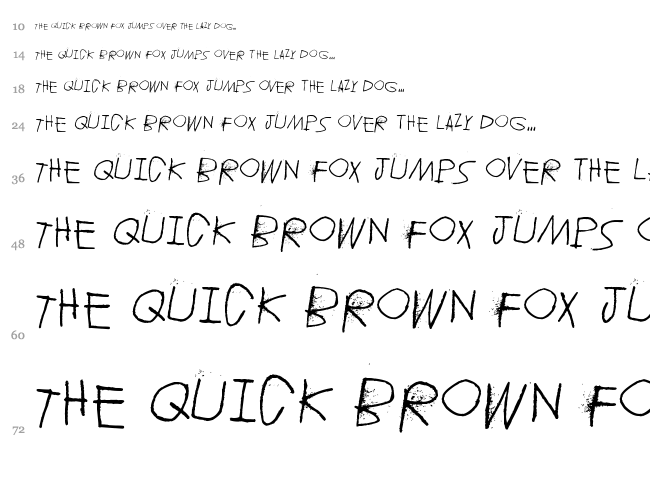 10 THE QUICK BROWN FOX JUMPS OVER THE LAZY DOG...
14 THE QUICK BROWN FOX JUMPS OVER THE LAZY DOG...
18 THE QUICK BROWN FOX JUMPS OVER THE LAZY DOG...
24 THE QUICK BROWN FOX JUMPS OVER THE LAZY DOG...
36 THE QUICK BROWN FOX JUMPS OVER THE L
48 THE QUICK BROWN FOX JUMPS O
60 THE QUICK BROWN FOX JU
72 THE QUICK BROWN FO